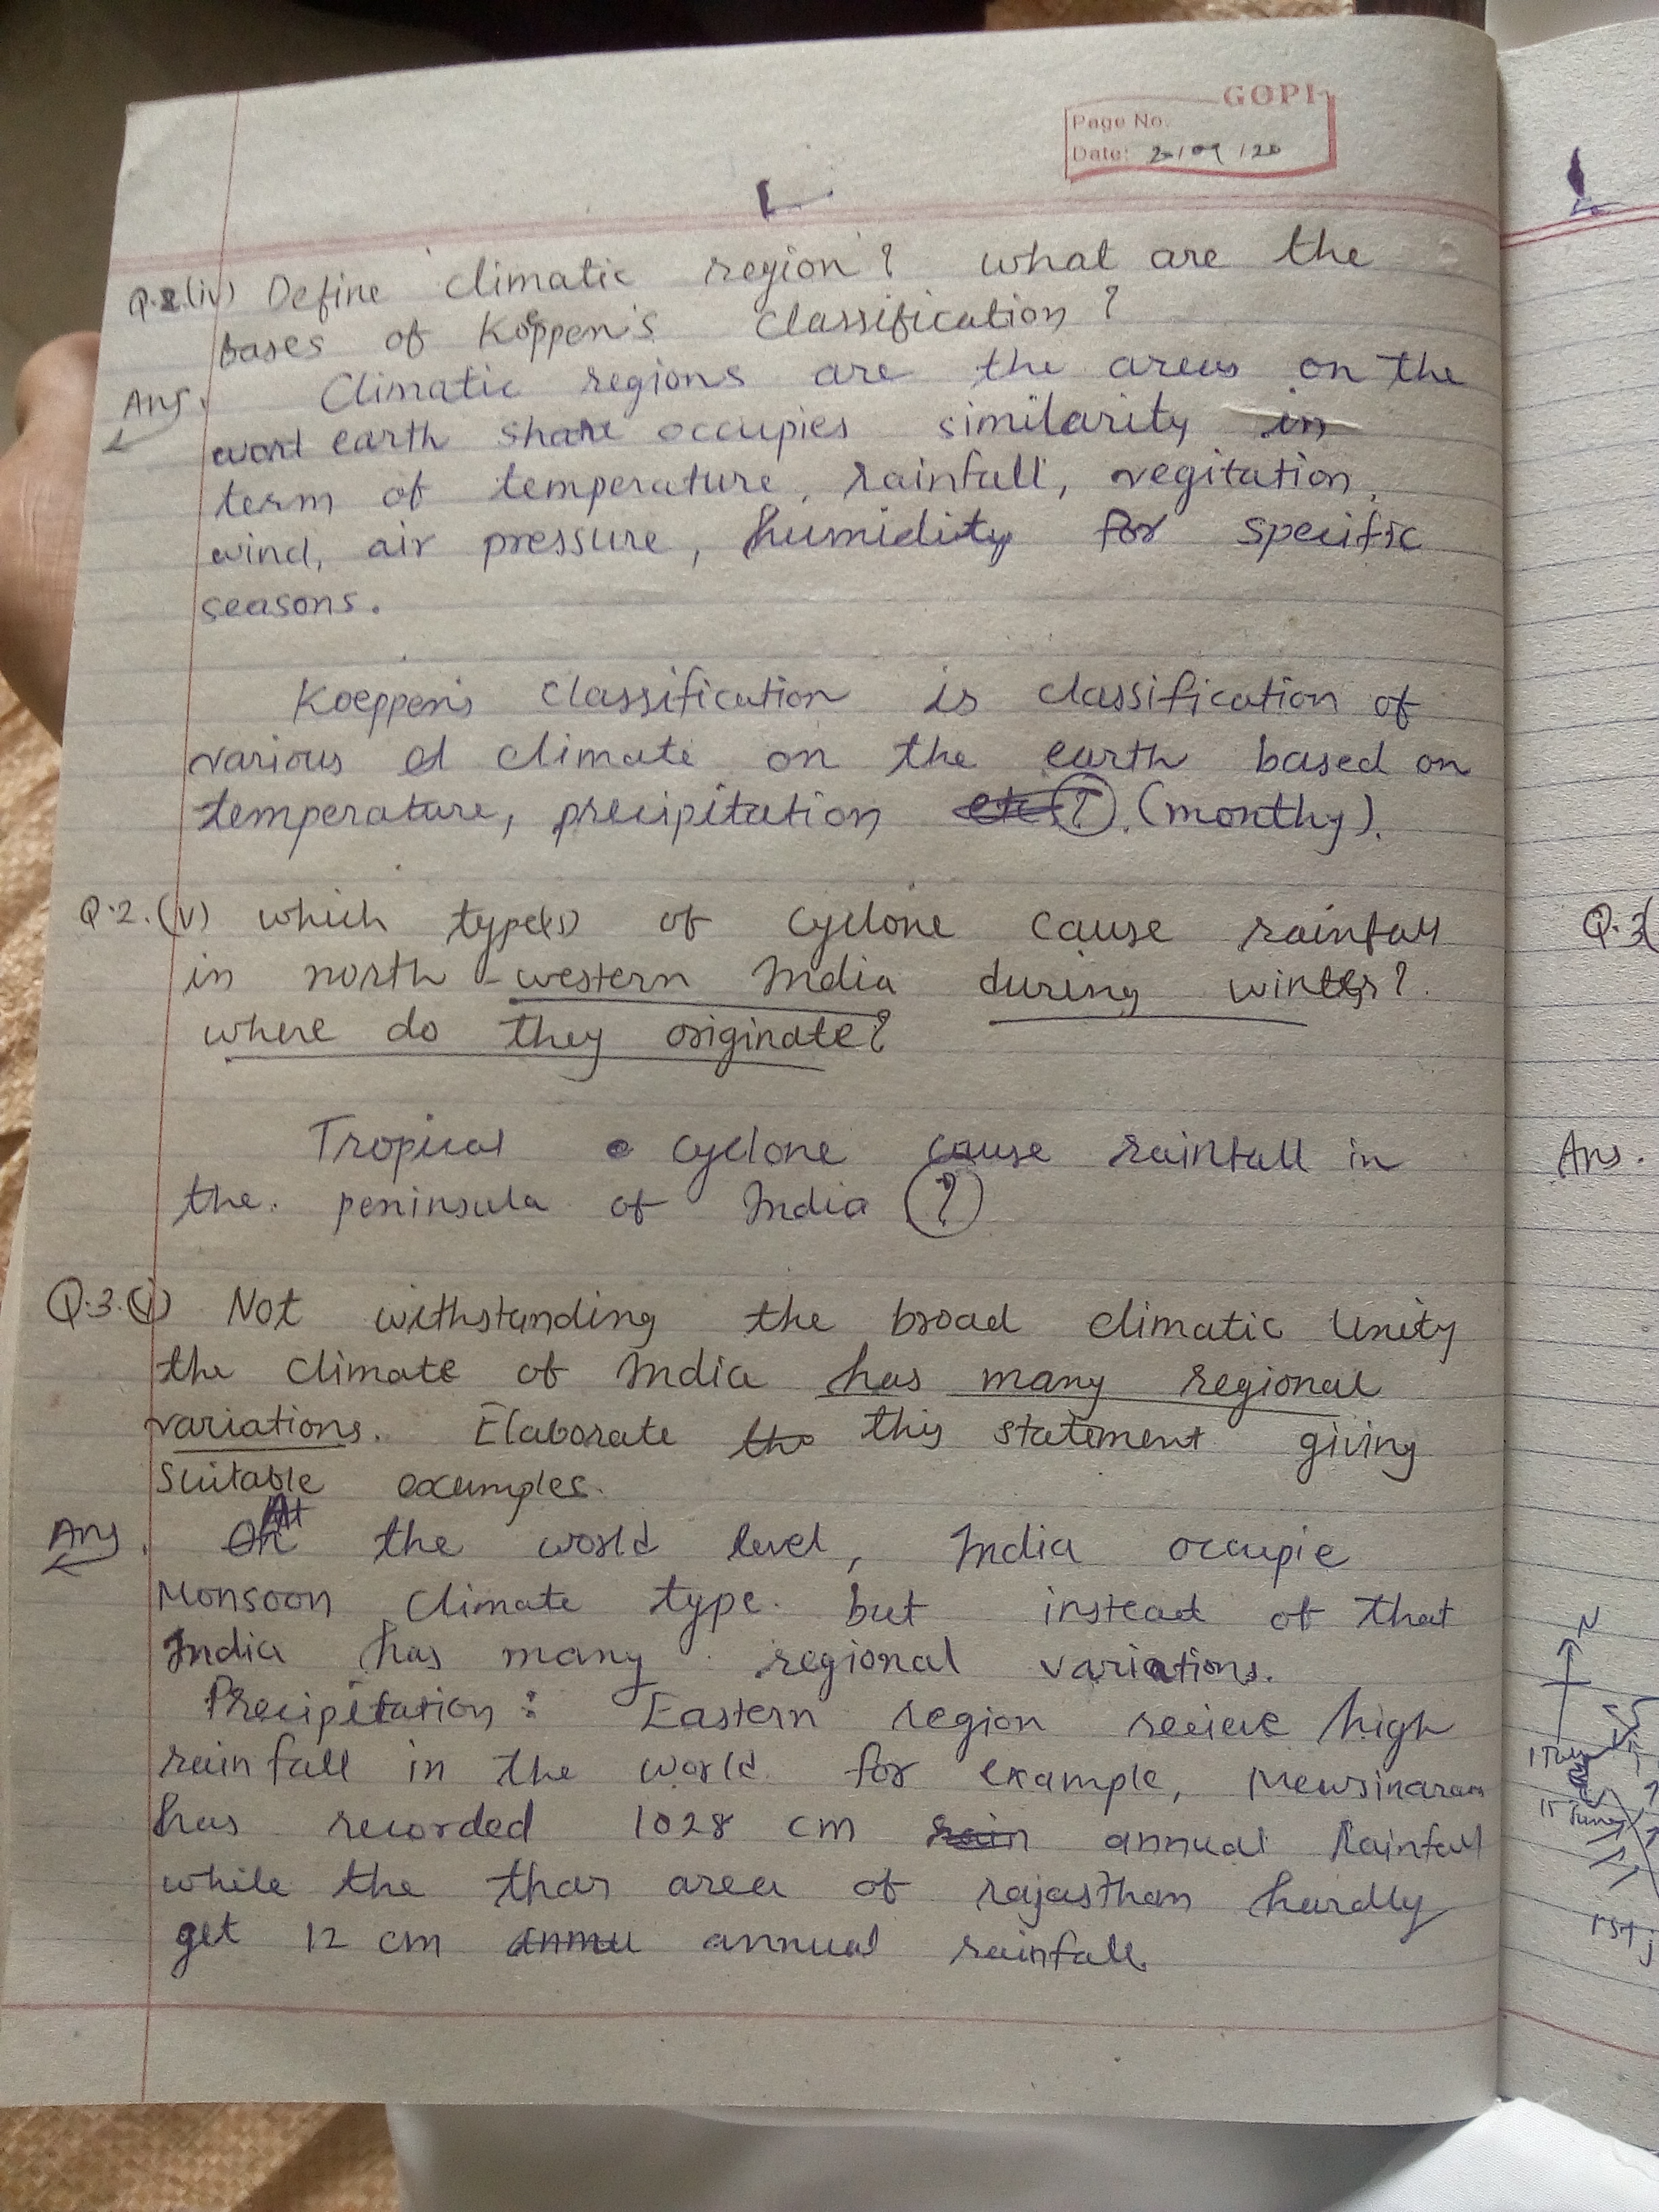 GOPI
Page No.
Date: 20/09/20
Q.2.(iv) Define climatic region? what are the
bases of Koeppen's classification?
Ans. Climatic regions are the areas on the
earth share occupies similarity in
term of temperature, rainfall, vegitation,
wind, air pressure, humidity for specific
seasons.
Koeppen's classification is classification of
various climate on the earth based on
temperature, precipitation etc (?). (monthy).
Q.2.(v) which type(s) of cyclone cause rainfall
in north-western India during winter?
where do they originate?
Tropical cyclone cause rainfall in
the. peninsula of India (?)
Q.3.(i) Not withstanding the broad climatic Unity
the climate of India has many regional
variations. Elaborate the this statement giving
suitable examples.
Ans. On At the world level, India occupie
Monsoon climate type. but instead of that
India has many regional variations.
Precipitation: Eastern region recieve high
rainfall in the world. for example, Mewsinaram
has recorded 1028 cm rain annual Rainfall
while the thar area of rajasthan hardly
get 12 cm annu annual rainfall.
Q.3(
Ans.
N
15 June
1st j